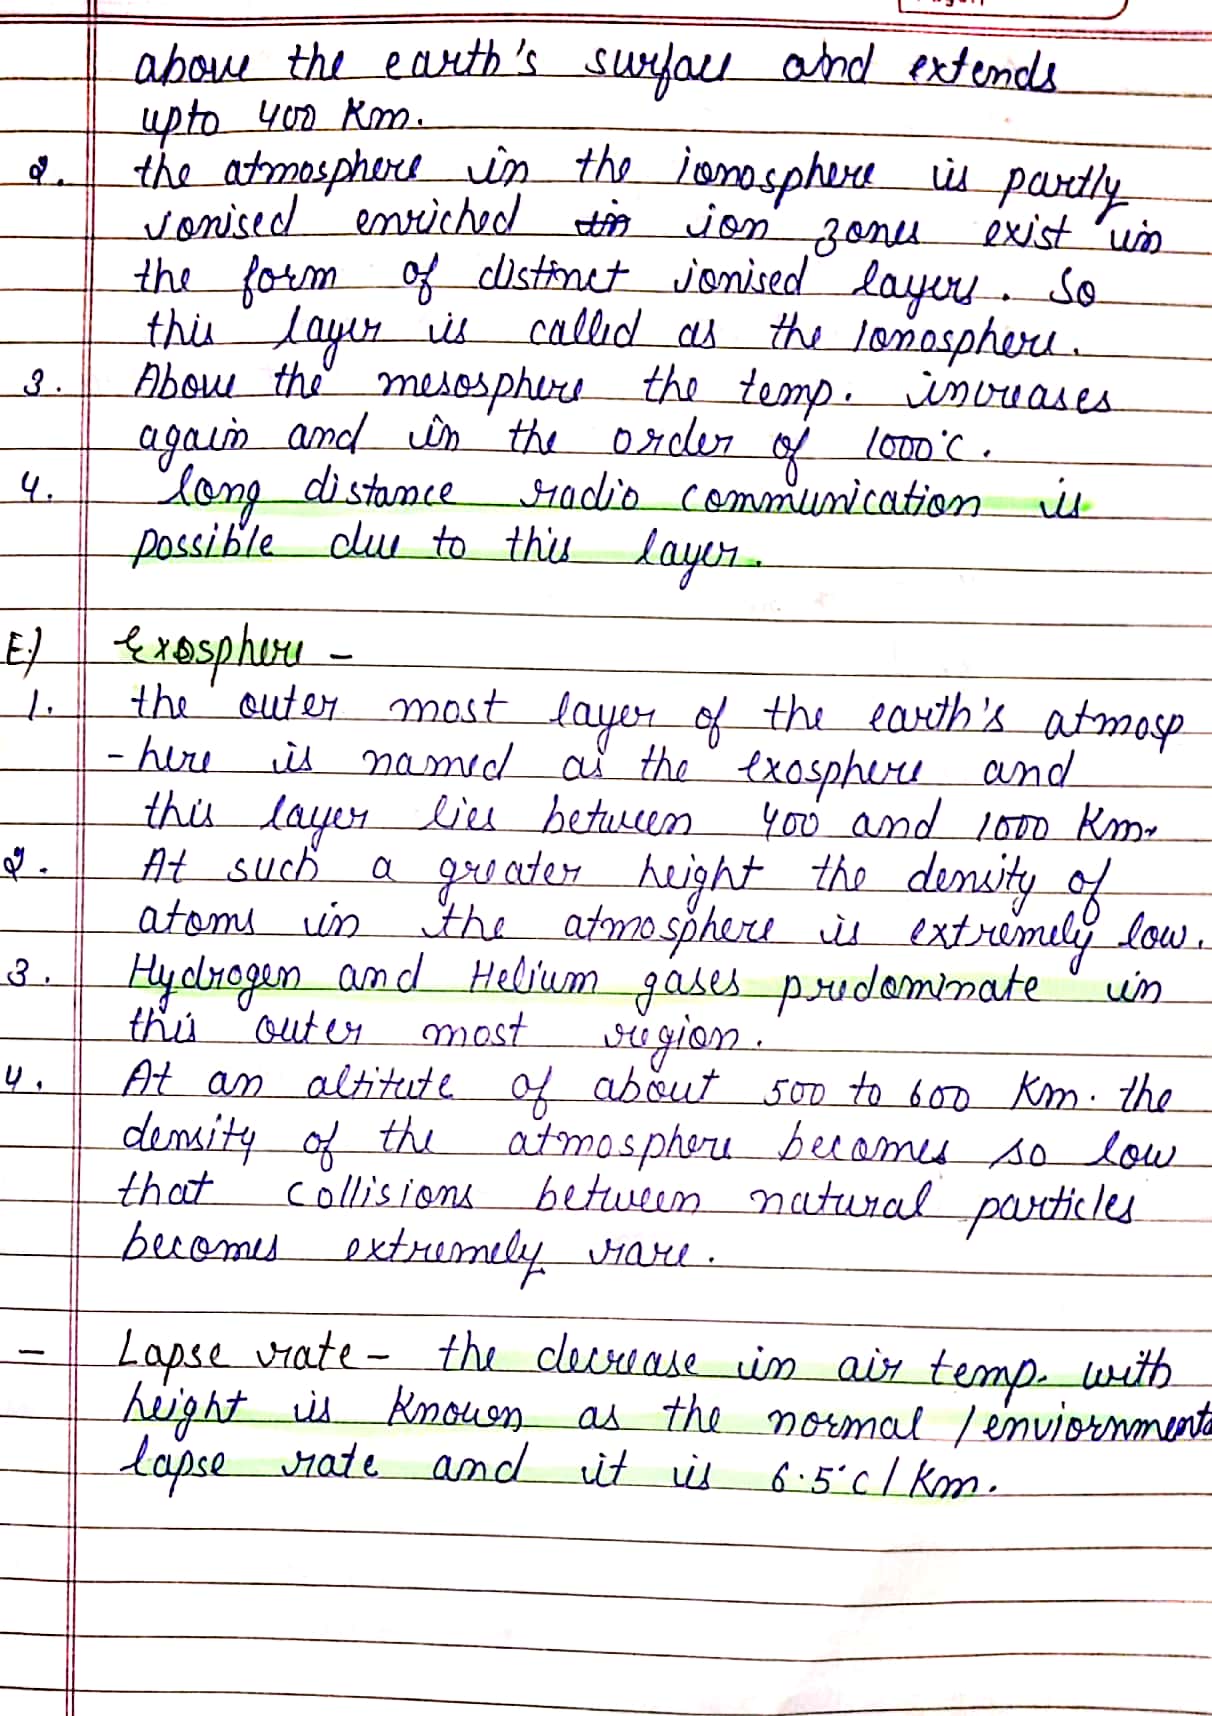 above the earth's surface and extends
upto 400 Km.
2. the atmosphere in the ionosphere is partly
ionised enriched ion zones exist in
the form of distinct ionised layers. So
this layer is called as the Ionosphere.
3. Above the mesosphere the temp. increases
again and in the order of 1000°C.
4. long distance radio communication is
possible due to this layer.
E.) Exosphere -
1. the outer most layer of the earth's atmosp
- here is named as the exosphere and
this layer lies between 400 and 1000 Km.
2. At such a greater height the density of
atoms in the atmosphere is extremely low.
3. Hydrogen and Helium gases predominate in
this outer most region.
4. At an altitute of about 500 to 600 Km. the
density of the atmosphere becomes so low
that collisions between natural particles
becomes extremely rare.
- Lapse rate - the decrease in air temp. with
height is Known as the normal / enviornmental
lapse rate and it is 6.5°c / Km.